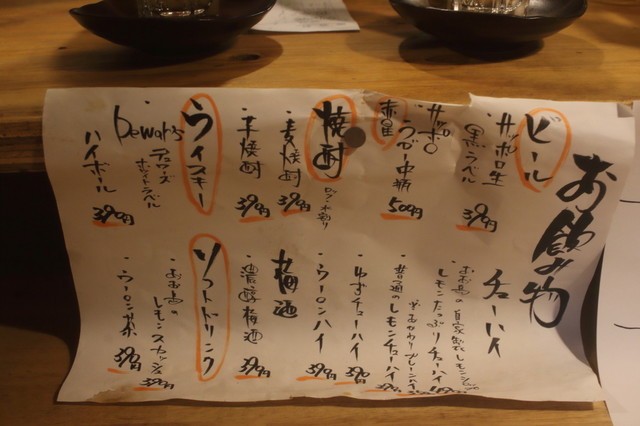 お飲み物
ビール
・サッポロ生
黒ラベル
390円
・サッポロ
赤星
ラガー中瓶
500円
焼酎
ロック・水割り
・麦焼酎
390円
・芋焼酎
390円
ウイスキー
・Dewar's
デュワーズ
ホワイトラベル
ハイボール
390円
チューハイ
レモンたっぷりチューハイ
・普通のレモンチューハイ
・ゆずチューハイ
390円
・ウーロンハイ
390円
梅酒
・濃醇梅酒
390円
ソフトドリンク
レモンスカッシュ
390円
・ウーロン茶
390円